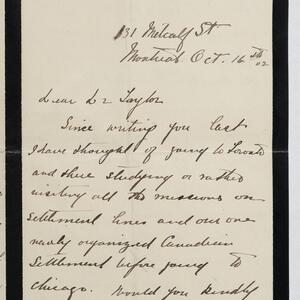 131 Metcalf St
Montreal Oct. 16th 02
Dear Dr Taylor
Since writing you last
I have thought of going to Toronto
and there studying or rather
visiting all the missions on
settlement lines and our one
newly organized Canadian
Settlement before going to
Chicago. Would you kindly